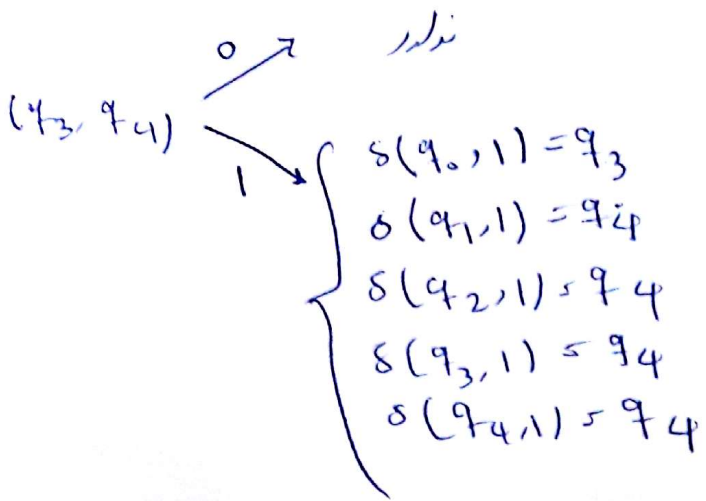 0 ندارد
(q₃, q₄)
1
δ(q₀, 1) = q₃
δ(q₁, 1) = q₄
δ(q₂, 1) = q₄
δ(q₃, 1) = q₄
δ(q₄, 1) = q₄